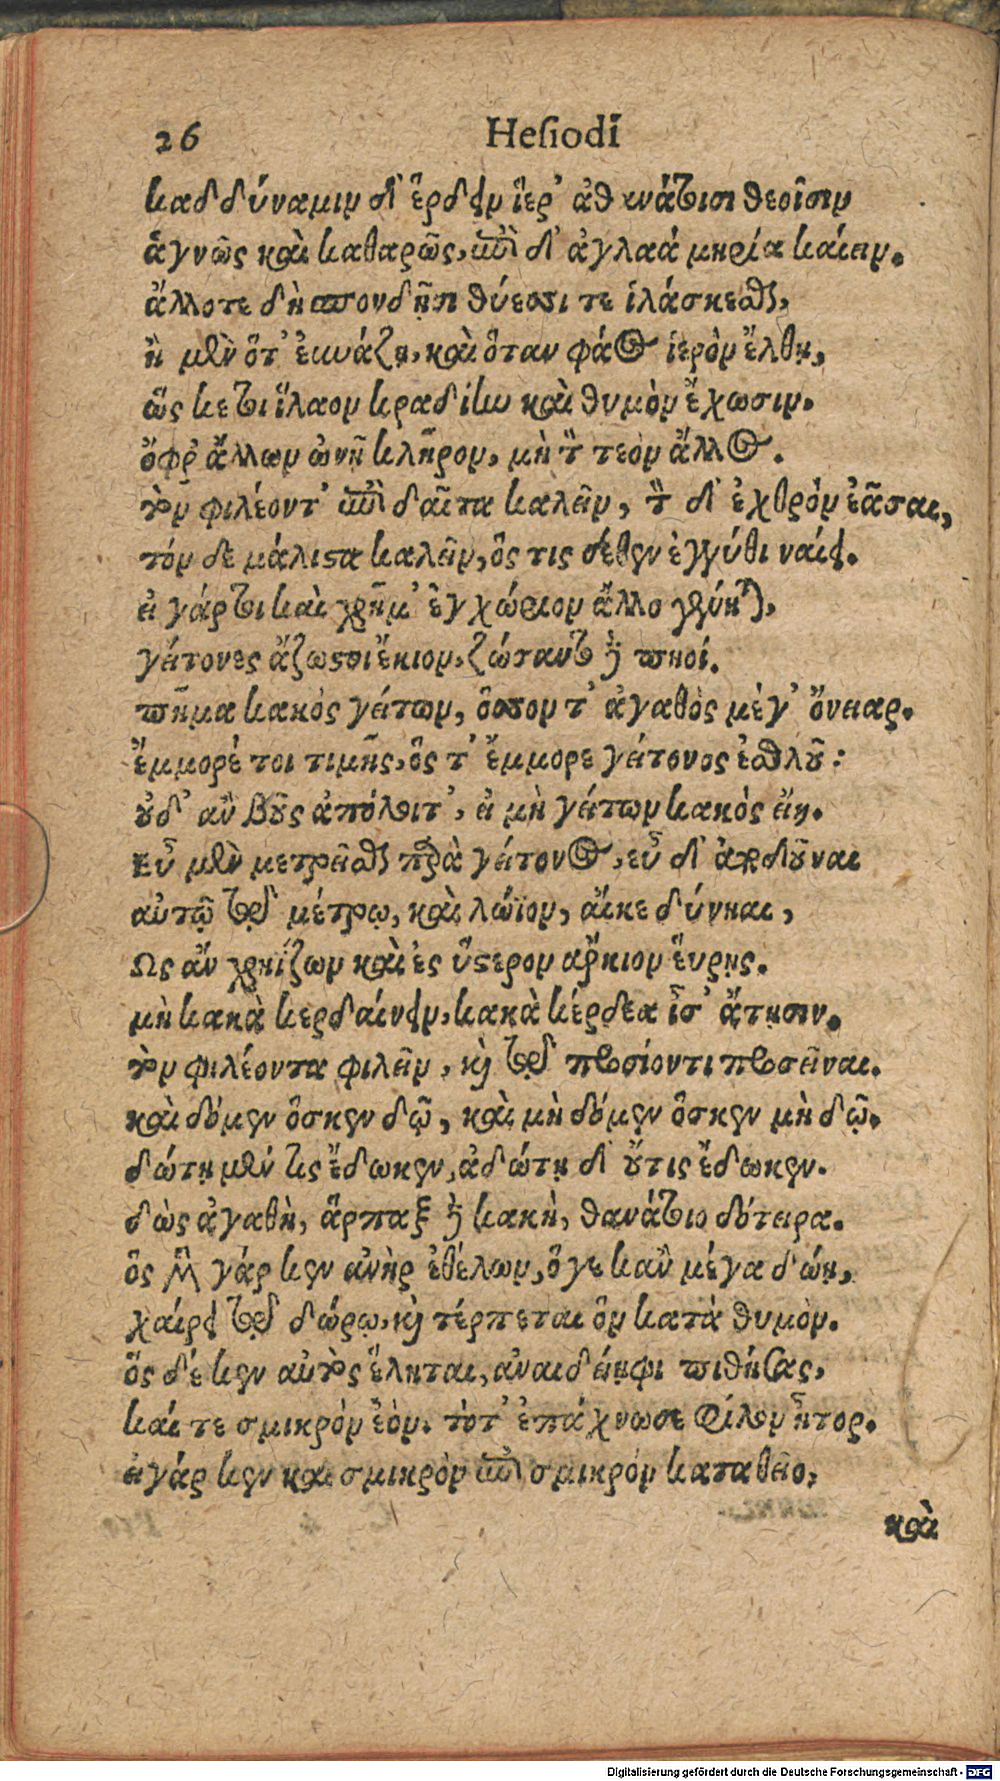 26 Hesiodi
καδδύναμιν δ' ἔρδειν ἱερ' ἀθανάτοισι θεοῖσιν
ἁγνῶς καὶ καθαρῶς, ἐπὶ δ' ἀγλαὰ μηρία καίειν.
ἄλλοτε δὴ σπονδῇσι θύεσσι τε ἱλάσκεσθαι,
ἢ μὲν ὅτ' ἐυνάζῃ, καὶ ὅταν φάος ἱερὸν ἔλθῃ,
ὥς κε τοι ἵλαον κραδίην καὶ θυμὸν ἔχωσιν.
ὄφρ' ἄλλων ὠνῇ κλῆρον, μὴ τὸν τεὸν ἄλλος.
τὸν φιλέοντ' ἐπὶ δαῖτα καλεῖν, τὸν δ' ἐχθρὸν ἐᾶσαι,
τόν δε μάλιστα καλεῖν, ὅς τις σέθεν ἐγγύθι ναίει.
εἰ γάρ τοι καὶ χρῆμ' ἐγχώριον ἄλλο γένηται,
γείτονες ἄζωστοι ἔκιον, ζώσαντο δὲ πηοί.
πῆμα κακὸς γείτων, ὅσσον τ' ἀγαθὸς μέγ' ὄνειαρ.
ἔμμορέ τοι τιμῆς, ὅς τ' ἔμμορε γείτονος ἐσθλοῦ:
οὐδ' ἂν βοῦς ἀπόλοιτ', εἰ μὴ γείτων κακὸς εἴη.
Εὖ μὲν μετρεῖσθαι παρὰ γείτονος, εὖ δ' ἀποδοῦναι
αὐτῷ τῷ μέτρῳ, καὶ λώϊον, αἴκε δύνηαι,
Ὡς ἂν χρηΐζων καὶ ἐς ὕστερον ἄρκιον ἕυρῃς.
μὴ κακὰ κερδαίνειν, κακὰ κέρδεα ἶσ' ἄτῃσιν.
τὸν φιλέοντα φιλεῖν, καὶ τῷ προσίοντι προσεῖναι.
καὶ δόμεν ὅσκεν δῷ, καὶ μὴ δόμεν ὅσκεν μὴ δῷ.
δώτῃ μέν τις ἔδωκεν, ἀδώτῃ δ' οὔτις ἔδωκεν.
δὼς ἀγαθὴ, ἅρπαξ δὲ κακὴ, θανάτοιο δότειρα.
ὃς μὲν γάρ κεν ἀνὴρ ἐθέλων, ὅγε κἂν μέγα δώῃ,
χαίρει τῷ δώρῳ, καὶ τέρπεται ὃν κατὰ θυμόν.
ὃς δέ κεν αὐτὸς ἕληται, ἀναιδείῃφι πιθήσας,
καί τε σμικρὸν ἐὸν. τότ' ἐπάχνωσε φίλον ἦτορ.
εἰ γάρ κεν καὶ σμικρὸν ἐπὶ σμικρὸν καταθεῖο,
καὶ
Digitalisierung gefördert durch die Deutsche Forschungsgemeinschaft - DFG